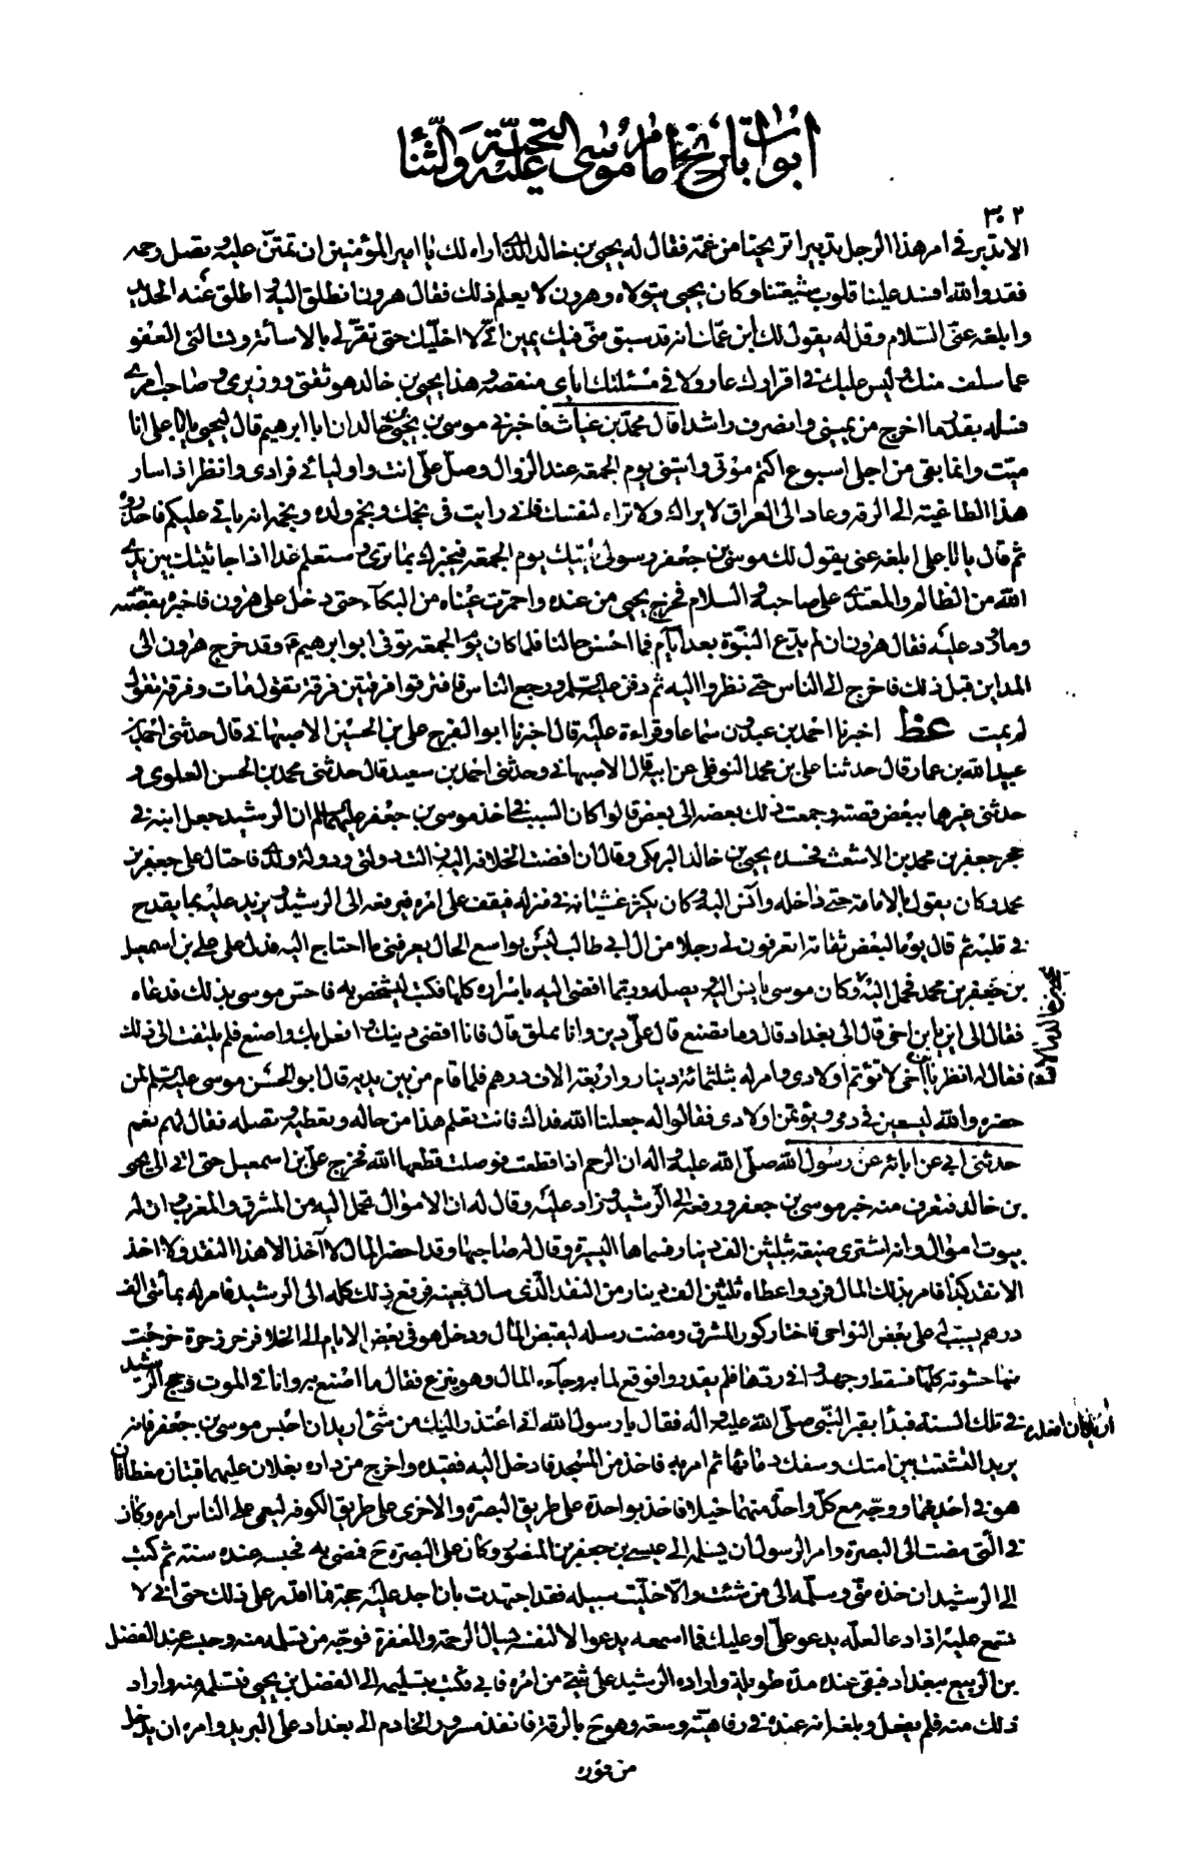 ابواب تاريخ الامام موسى عليه التحية والثنا
٣٠٢
الا تدبر في امر هذا الرجل تدبيرا تريحنا من غمه فقال له يحيى بن خالد الذي اراه لك يا امير المؤمنين ان تمتن عليه و تصل رحمه
فقد والله افسد علينا قلوب شيعتنا وكان يحيى يتولاه وهرون لا يعلم ذلك فقال هرون انطلق اليه و اطلق عنه الحديد
وابلغه عني السلام وقل له يقول لك ابن عمك انه قد سبق مني فيك يمين اني لا اخليك حتى تقر لي بالاسائة وتسالني العفو
عما سلف منك وليس عليك في اقرارك عار ولا في مسئلتك اياي منقصة وهذا يحيى بن خالد هو ثقتي ووزيري وصاحب امري
فسله بقدر ما اخرج من يميني وانصرف راشدا قال محمد بن غياث فاخبرني موسى بن يحيى بن خالد ان ابا ابرهيم قال ليحيى يا ابا علي انا
ميت وانما بقي من اجلي اسبوع اكتم موتي وائتني يوم الجمعة عند الزوال وصل علي انت واوليائي فرادى وانظر اذا سار
هذا الطاغية الى الرقه وعاد الى العراق لا يراك ولا تراه لنفسك فاني رايت في نجمك ونجم ولده ونجمه انه ياتي عليكم فاحذروه
ثم قال يا ابا علي ابلغه عني يقول لك موسى بن جعفر رسولي ياتيك يوم الجمعة فيخبرك بما ترى وستعلم غدا اذا جاثيتك بين يدي
الله من الظالم والمعتدي على صاحبه والسلام فخرج يحيى من عنده واحمرت عيناه من البكآء حتى دخل على هرون فاخبره بقصته
وما رد عليه فقال هرون ان لم يدع النبوة بعد ايام فما احسن حالنا فلما كان يوم الجمعة توفي ابو ابرهيم ع وقد خرج هرون الى
المداين قبل ذلك فاخرج الى الناس حتى نظروا اليه ثم دفن عليه السلم ورجع الناس فافترقوا فرقتين فرقة تقول مات وفرقة تقول
لم يمت عط اخبرنا احمد بن عبدون سماعا وقراءة عليه قال اخبرنا ابو الفرج علي بن الحسين الاصبهاني قال حدثني احمد بن
عبيد الله بن عمار قال حدثنا علي بن محمد النوفلي عن ابيه قال الاصبهاني وحدثني احمد بن سعيد قال حدثني محمد بن الحسن العلوي و
حدثني غيرهما ببعض قصته وجمعت ذلك بعضه الى بعض قالوا كان السبب في اخذ موسى بن جعفر عليهما السلم ان الرشيد جعل ابنه في
حجر جعفر بن محمد بن الاشعث فحسده يحيى بن خالد البرمكي وقال ان افضت الخلافه اليه زالت دولتي ودولة ولدي فاحتال على جعفر بن
محمد وكان يقول بالامامة حتى داخله وآنس اليه وكان يكثر غشيانه في منزله فيقف على امره فيرفعه الى الرشيد ويزيد عليه بما يقدح
في قلبه ثم قال يوما لبعض ثقاته اتعرفون لي رجلا من ال ابي طالب ليس بواسع الحال يعرفني ما احتاج اليه فدل على علي بن اسمعيل
بن جعفر بن محمد فحمل اليه وكان موسى يانس اليه ويصله وربما افضى اليه باسراره كلها فكتب ليشخص به فاحس موسى بذلك فدعاه
يحيى بن خالد
فقال الى اين يابن اخي قال الى بغداد قال وما تصنع قال علي دين وانا مملق قال فانا اقضي دينك وافعل بك واصنع فلم يلتفت الى ذلك
فقال له انظر يابن اخي لا تؤتم اولادي وامر له بثلثمائة دينار واربعة الاف درهم فلما قام من بين يديه قال ابو الحسن موسى عليه السلم لمن
حضره والله ليسعين في دمي ويؤتمن اولادي فقالوا له جعلنا الله فداك فانت تعلم هذا من حاله وتعطيه وتصله فقال لهم نعم
حدثني ابي عن ابائه عن رسول الله صلى الله عليه واله ان الرحم اذا قطعت فوصلت قطعها الله فخرج علي بن اسمعيل حتى اتى الى يحيى
بن خالد فتعرف منه خبر موسى بن جعفر ورفعه الى الرشيد وزاد عليه وقال له ان الاموال تحمل اليه من المشرق والمغرب وان له
بيوت اموال وانه اشترى ضيعة بثلثين الف دينار فسماها اليسيرة وقال له صاحبها وقد احضر المال لا آخذ الا هذا النقد ولا اخذ
الا نقد كذا فامر بذلك المال فرد واعطاه ثلثين الف دينار من النقد الذي سال بعينه فرفع ذلك كله الى الرشيد فامر له بمأتي الف
درهم يسبب له على بعض النواحي فاختار كور المشرق ومضت رسله ليقبض المال ودخل هو في بعض الايام الى الخلا فزحر زحرة خرجت
منها حشوته كلها فسقط وجهدوا في ردها فلم يقدروا فوقع لما به وجآءه المال وهو ينزع فقال ما اصنع به وانا في الموت وحج الرشيد
في تلك السنة فبدأ بقبر النبي صلى الله عليه واله فقال يا رسول الله اني اعتذر اليك من شئ اريد ان افعله اريد ان احبس موسى بن جعفر فانه
يريد التشتت بين امتك وسفك دمائها ثم امر به فاخذ من المسجد فادخل اليه فقيده واخرج من داره بغلان عليهما قبتان مغطاتان
هو في احديهما ووجه مع كل واحد منهما خيلا فاخذ بواحدة على طريق البصرة والاخرى على طريق الكوفه ليعمى على الناس امره وكان
في التي مضت الى البصرة وامر الرسول ان يسلمه الى عيسى بن جعفر بن المنصور وكان على البصرة ح فمضى به فحبسه عنده سنة ثم كتب
الى الرشيد ان خذه مني وسلمه الى من شئت والا خليت سبيله فقد اجتهدت بان اجد عليه حجة فما اقدر على ذلك حتى اني لا
تسمع عليه اذا دعا لعله يدعو علي او عليك فما اسمعه يدعو الا لنفسه يسال الرحمة والمغفرة فوجه من تسلمه منه وحبسه عند الفضل
بن الربيع ببغداد فبقي عنده مدة طويلة واراده الرشيد على شئ من امره فابى فكتب بتسليمه الى الفضل بن يحيى فتسلمه منه واراد
ذلك منه فلم يفعل وبلغه انه عنده في رفاهية وسعة وهو ح بالرقة فانفذ مسرور الخادم الى بغداد على البريد وامره ان يدخل
من فوره